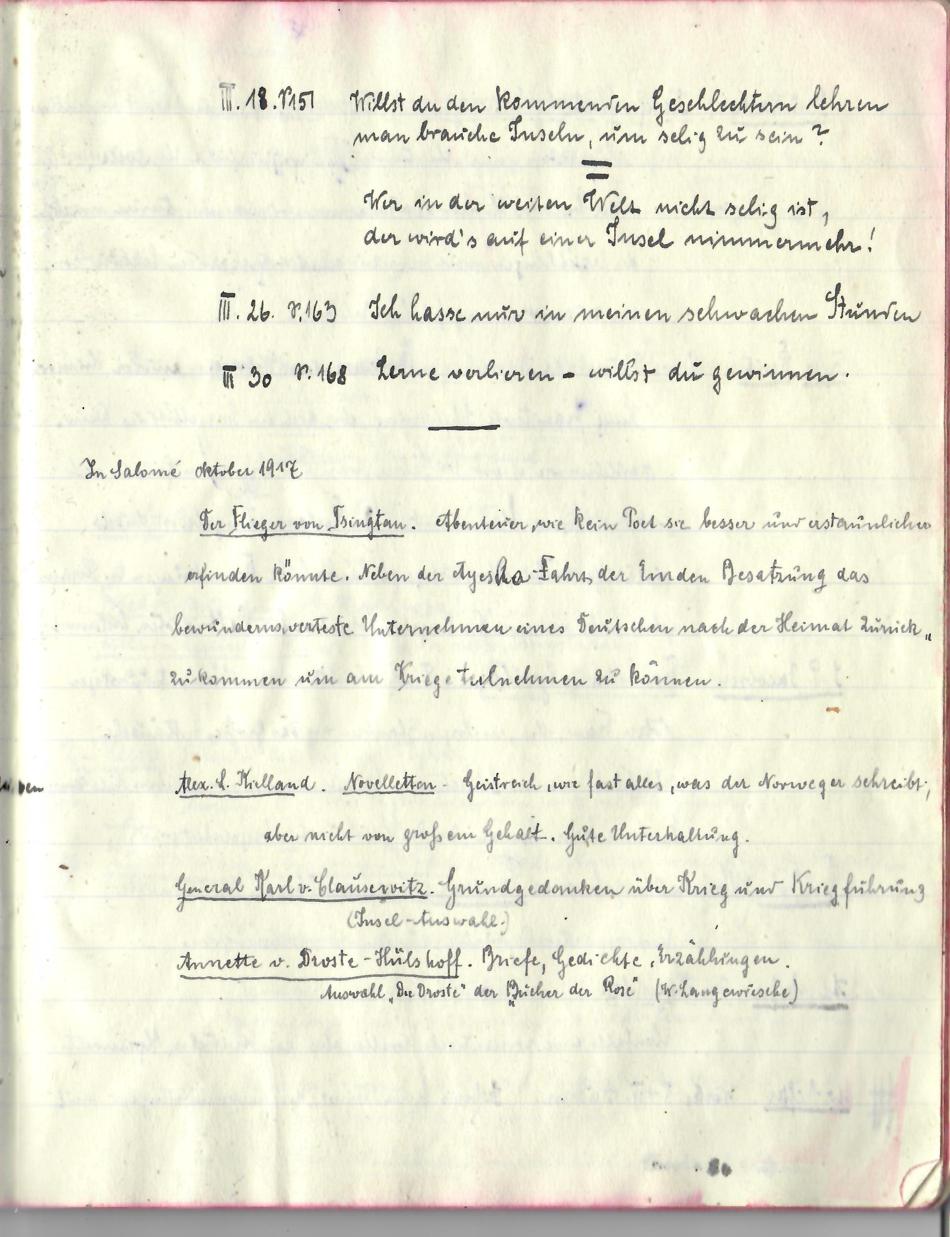 III. 18. V151 Willst du den kommenden Geschlechtern lehren
man brauche Inseln, um selig zu sein?
=
Wer in der weiten Welt nicht selig ist,
der wird's auf einer Insel nimmermehr!
III. 26. V. 163 Ich hasse nur in meinen schwachen Stunden
III 30 V. 168 Lerne verlieren – willst du gewinnen.
In Salomé oktober 1917
Der Flieger von Tsingtau. Abenteuer, wie kein Poet sie besser und erstaunlicher
erfinden könnte. Neben der Ayesha-Fahrt der Emden Besatzung das
bewundernswerteste Unternehmen eines Deutschen nach der Heimat zurück„
zukommen um am Kriege teilnehmen zu können.
Alex. L. Kielland. Novelletten - Geistreich, wie fast alles, was der Norweger schreibt,
aber nicht von großem Gehalt. Gute Unterhaltung.
General Karl v. Clausewitz. Grundgedanken über Krieg und Kriegführung
(Insel-Auswahl.)
Annette v. Droste-Hülshoff. Briefe, Gedichte, Erzählungen.
Auswahl „Die Droste" der „Bücher der Rose" (W. Langewiesche)